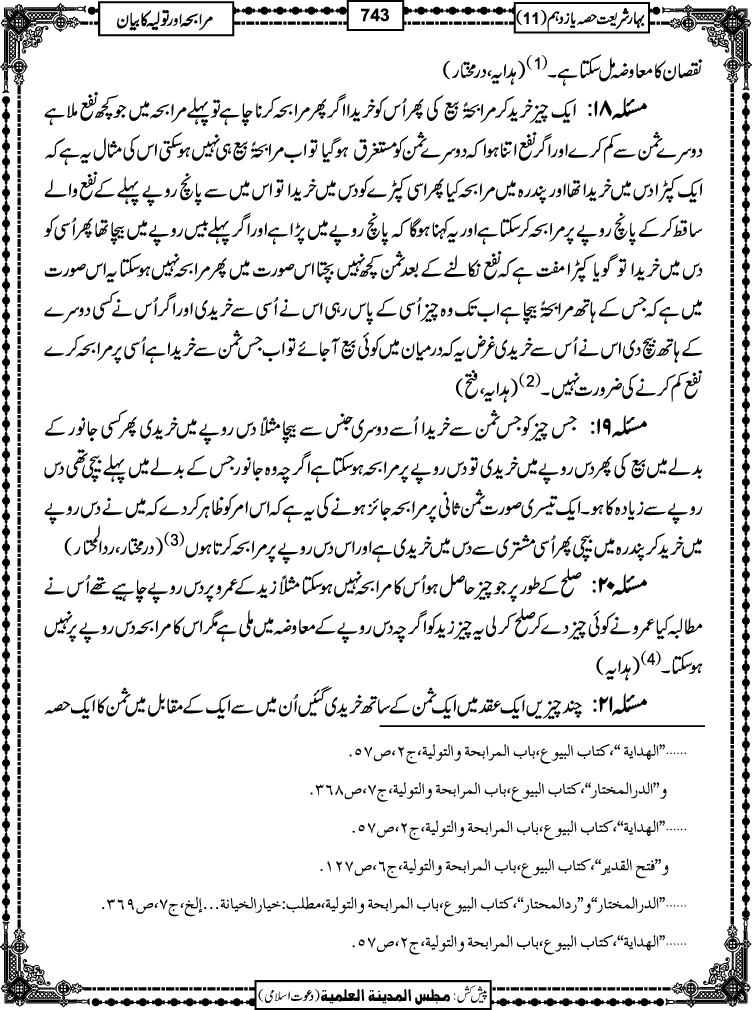 بہار شریعت حصہ یازدہم (11)
743
مرابحہ اور تولیہ کا بیان
نقصان کا معاوضہ مل سکتا ہے۔(1) (ہدایہ، درمختار)
مسئلہ ۱۸: ایک چیز خرید کر مرابحۃً بیع کی پھر اُس کو خریدا اگر پھر مرابحہ کرنا چاہے تو پہلے مرابحہ میں جو کچھ نفع ملا ہے
دوسرے ثمن سے کم کرے اور اگر نفع اتنا ہوا کہ دوسرے ثمن کو مستغرق ہو گیا تو اب مرابحۃً بیع ہی نہیں ہو سکتی اس کی مثال یہ ہے کہ
ایک کپڑا دس میں خریدا تھا اور پندرہ میں مرابحہ کیا پھر اسی کپڑے کو دس میں خریدا تو اس میں سے پانچ روپے پہلے کے نفع والے
ساقط کر کے پانچ روپے پر مرابحہ کر سکتا ہے اور یہ کہنا ہوگا کہ پانچ روپے میں پڑا ہے اور اگر پہلے بیس روپے میں بیچا تھا پھر اُسی کو
دس میں خریدا تو گویا کپڑا مفت ہے کہ نفع نکالنے کے بعد ثمن کچھ نہیں بچتا اس صورت میں پھر مرابحہ نہیں ہو سکتا یہ اس صورت
میں ہے کہ جس کے ہاتھ مرابحۃً بیچا ہے اب تک وہ چیز اُسی کے پاس رہی اس نے اُسی سے خریدی اور اگر اُس نے کسی دوسرے
کے ہاتھ بیچ دی اس نے اُس سے خریدی غرض یہ کہ درمیان میں کوئی بیع آ جائے تو اب جس ثمن سے خریدا ہے اُسی پر مرابحہ کرے
نفع کم کرنے کی ضرورت نہیں۔(2) (ہدایہ، فتح)
مسئلہ ۱۹: جس چیز کو جس ثمن سے خریدا اُسے دوسری جنس سے بیچا مثلاً دس روپے میں خریدی پھر کسی جانور کے
بدلے میں بیع کی پھر دس روپے میں خریدی تو دس روپے پر مرابحہ ہو سکتا ہے اگرچہ وہ جانور جس کے بدلے میں پہلے بیچی تھی دس
روپے سے زیادہ کا ہو۔ ایک تیسری صورت ثمن ثانی پر مرابحہ جائز ہونے کی یہ ہے کہ اس امر کو ظاہر کر دے کہ میں نے دس روپے
میں خرید کر پندرہ میں بیچی پھر اُسی مشتری سے دس میں خریدی ہے اور اس دس روپے پر مرابحہ کرتا ہوں(3) (درمختار، ردالمحتار)
مسئلہ ۲۰: صلح کے طور پر جو چیز حاصل ہو اُس کا مرابحہ نہیں ہو سکتا مثلاً زید کے عمرو پر دس روپے چاہیے تھے اُس نے
مطالبہ کیا عمرو نے کوئی چیز دے کر صلح کر لی یہ چیز زید کو اگرچہ دس روپے کے معاوضہ میں ملی ہے مگر اس کا مرابحہ دس روپے پر نہیں
ہو سکتا۔(4) (ہدایہ)
مسئلہ ۲۱: چند چیزیں ایک عقد میں ایک ثمن کے ساتھ خریدی گئیں اُن میں سے ایک کے مقابل میں ثمن کا ایک حصہ
......”الهداية“، كتاب البيوع، باب المرابحة والتولية، ج۲، ص۵۷.
و”الدرالمختار“، كتاب البيوع، باب المرابحة والتولية، ج۷، ص۳۶۸.
......”الهداية“، كتاب البيوع، باب المرابحة والتولية، ج۲، ص۵۷.
و”فتح القدير“، كتاب البيوع، باب المرابحة والتولية، ج۶، ص۱۲۷.
......”الدرالمختار“ و”ردالمحتار“، كتاب البيوع، باب المرابحة والتولية، مطلب: خيار الخيانة...إلخ، ج۷، ص۳۶۹.
......”الهداية“، كتاب البيوع، باب المرابحة والتولية، ج۲، ص۵۷.
پیش کش: مجلس المدینۃ العلمیۃ (دعوت اسلامی)